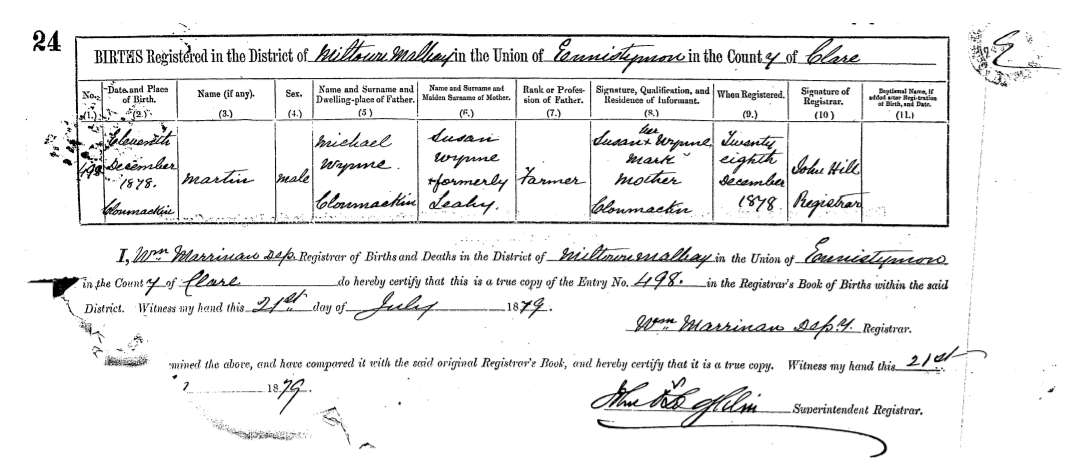 24
BIRTHS Registered in the District of Miltown Malbay in the Union of Ennistymon in the County of Clare
No. Date and Place of Birth. Name (if any). Sex. Name and Surname and Dwelling-place of Father. Name and Surname and Maiden Surname of Mother. Rank or Profession of Father. Signature, Qualification, and Residence of Informant. When Registered. Signature of Registrar. Baptismal Name, if added after Registration of Birth, and Date.
(1.) (2.) (3.) (4.) (5) (6.) (7.) (8.) (9.) (10) (11.)
498 Eleventh December 1878. Clounmackin Martin Male Michael Wynne. Clounmackin Susan Wynne formerly Leahy. Farmer Susan x Wynne her Mark Mother Clounmackin Twenty eighth December 1878 John Hill Registrar
I, Wm Marrinan Dep. Registrar of Births and Deaths in the District of Miltown malbay in the Union of Ennistymon
in the County of Clare do hereby certify that this is a true copy of the Entry No. 498. in the Registrar's Book of Births within the said
District. Witness my hand this 21st day of July 1879.
Wm Marrinan Depy. Registrar.
mined the above, and have compared it with the said original Registrar's Book, and hereby certify that it is a true copy. Witness my hand this 21st
1879.
Superintendent Registrar.